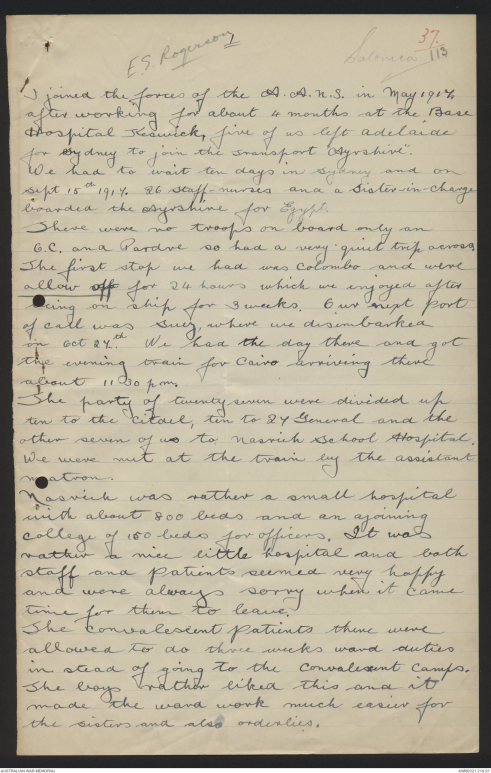 E.S. Rogerson
Salonica
37.
113
I joined the forces of the A.A.N.S. in May 1917,
after working for about 4 months at the Base
Hospital Keswick, five of us left Adelaide
for Sydney to join the transport "Ayrshire".
We had to wait ten days in Sydney and on
Sept 15th 1917. 26 Staff-nurses and a Sister-in-charge
boarded the Ayrshire for Egypt.
There were no troops on board only an
O.C. and Pardre so had a very quiet trip across.
The first stop we had was Colombo and were
allow off for 24 hours which we enjoyed after
being on ship for 3 weeks. Our next Port
of call was Suez, where we disembarked
on Oct 24th. We had the day there and got
the evening train for Cairo arriving there
about 11-30 p.m.
The party of twenty seven were divided up
ten to the Citadel, ten to 27 General and the
other seven of us to Nasrieh School Hospital.
We were met at the train by the assistant
matron.
Nasrieh was rather a small hospital
with about 800 beds and an ajoining
college of 150 beds for officers. It was
rather a nice little hospital and both
staff and patients seemed very happy
and were always sorry when it came
time for them to leave.
The convalescent patients there were
allowed to do three weeks ward duties
in stead of going to the convalescent camps.
The boys rather liked this and it
made the ward work much easier for
the sisters and also orderlies.
AUSTRALIAN WAR MEMORIAL